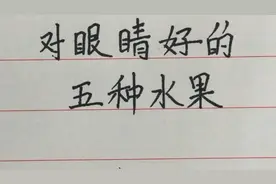 对眼睛好的
五种水果